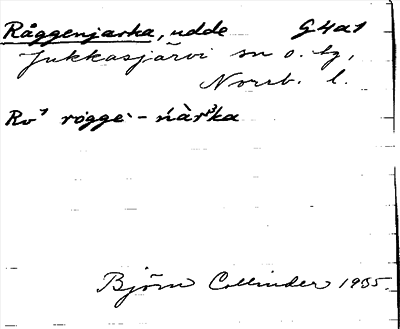 Råggenjarka, udde G4a1
Jukkasjärvi sn o. tg,
Norrb. l.
Rv⁷ rögge`- ńàrᶾka
Björn Collinder 1935.